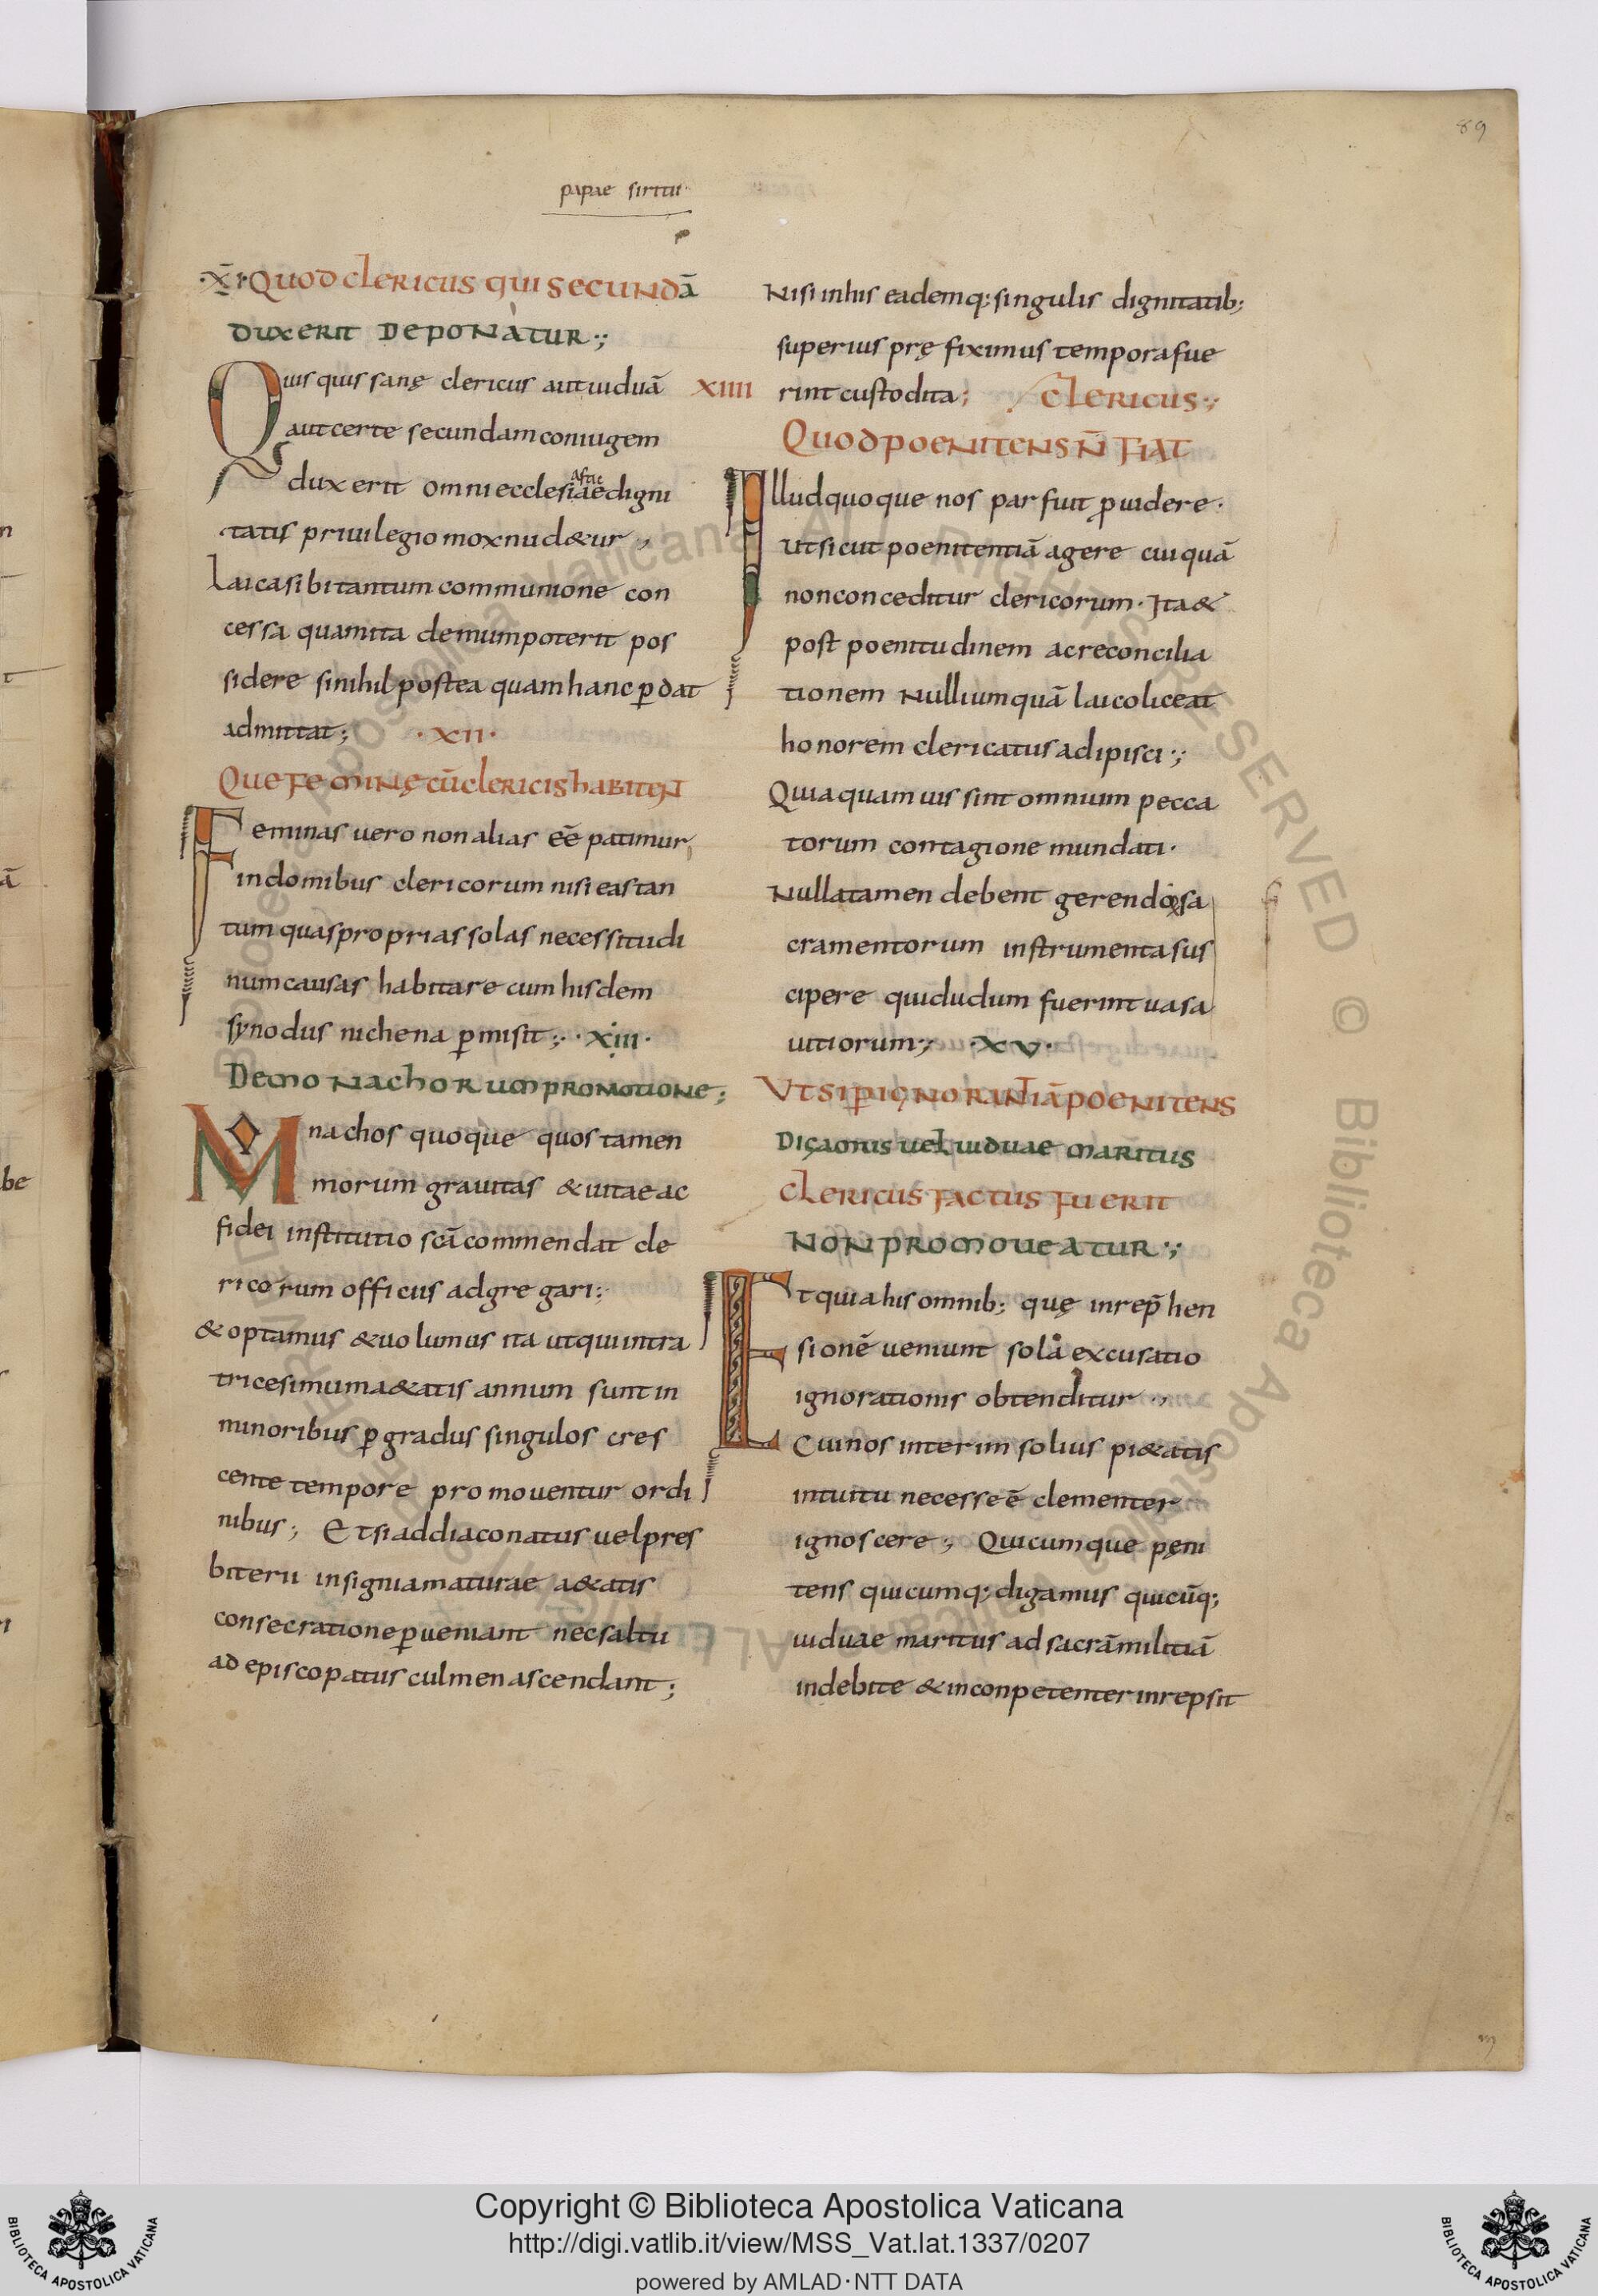 89
papae sirtii
·XI· Quod clericus qui secundā
duxerit deponatur·;
Quisquis sanę clericus aut uiduā
aut certe secundam coniugem
duxerit omni ecclesiasticae digni
tatis priuilegio mox nud&ur,
Laica sibi tantum communione con
cessa quam ita demum poterit pos
sidere si nihil postea quam hanc ꝑdat
admittat; ·XII·
Que feminę cū clericis habitent
Feminas uero non alias eē patimur
in domibus clericorum nisi eas tan
tum quas proprias solas necessitudi
num causas habitare cum hisdem
synodus nichena ꝑmisit; ·XIII·
De monachorum promotione;
Monachos quoque quos tamen
morum grauitas & uitae ac
fidei institutio scā commendat cle
ricorum officiis adgregari;
& optamus & uolumus ita ut qui intra
tricesimum a&atis annum sunt in
minoribus ꝑ gradus singulos cres
cente tempore promoventur ordi
nibus; Et si ad diaconatus uel pres
biterii insignia maturae a&atis
consecratione ꝑueniant nec saltu
ad episcopatus culmen ascendant;
Nisi in his eademq; singulis dignitatib;
superius pręfiximus tempora fue
rint custodita; clericus·;
XIIII Quod poenitens n̄ fiat
Illud quoque nos par fuit ꝓuidere·
ut sicut poenitentiā agere cuiquā
non conceditur clericorum· Ita &
post poenitudinem ac reconcilia
tionem nulli umquā laico liceat
honorem clericatus adipisci·;
Quia quamuis sint omnium pecca
torum contagione mundati·
Nulla tamen debent gerendo sa
cramentorum instrumenta sus
cipere qui dudum fuerint uasa
uitiorum; ·XV·
Ut si ꝑ ignorantiā poenitens
digamus uel uiduae maritus
clericus factus fuerit
non promoueatur·;
Et quia his omnib; quę in rep̄hen
sionē ueniunt sola excusatio
ignorationis obtenditur,
Cui nos interim solius pi&atis
intuitu necesse ē clementer
ignoscere, Quicumque pęni
tens quicumq; digamus quicūq;
uiduae maritus ad sacrā militiā
indebite & inconpetenter inrepsit
Copyright © Biblioteca Apostolica Vaticana
http://digi.vatlib.it/view/MSS_Vat.lat.1337/0207
powered by AMLAD·NTT DATA